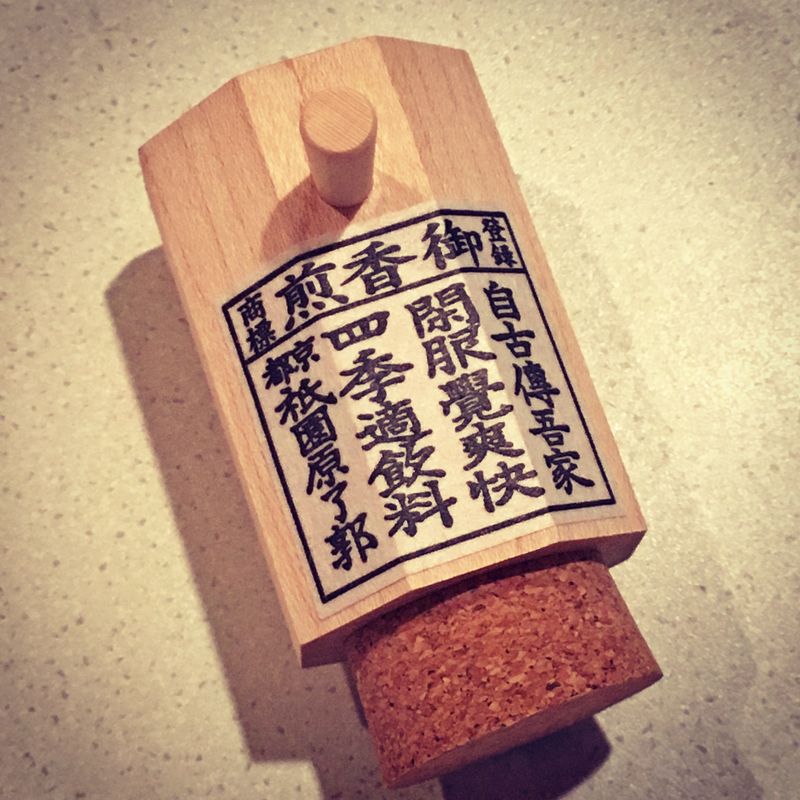 登録
御香煎
商標
自古傳吾家
閑服覺爽快
四季適飲料
京都祇園原了郭